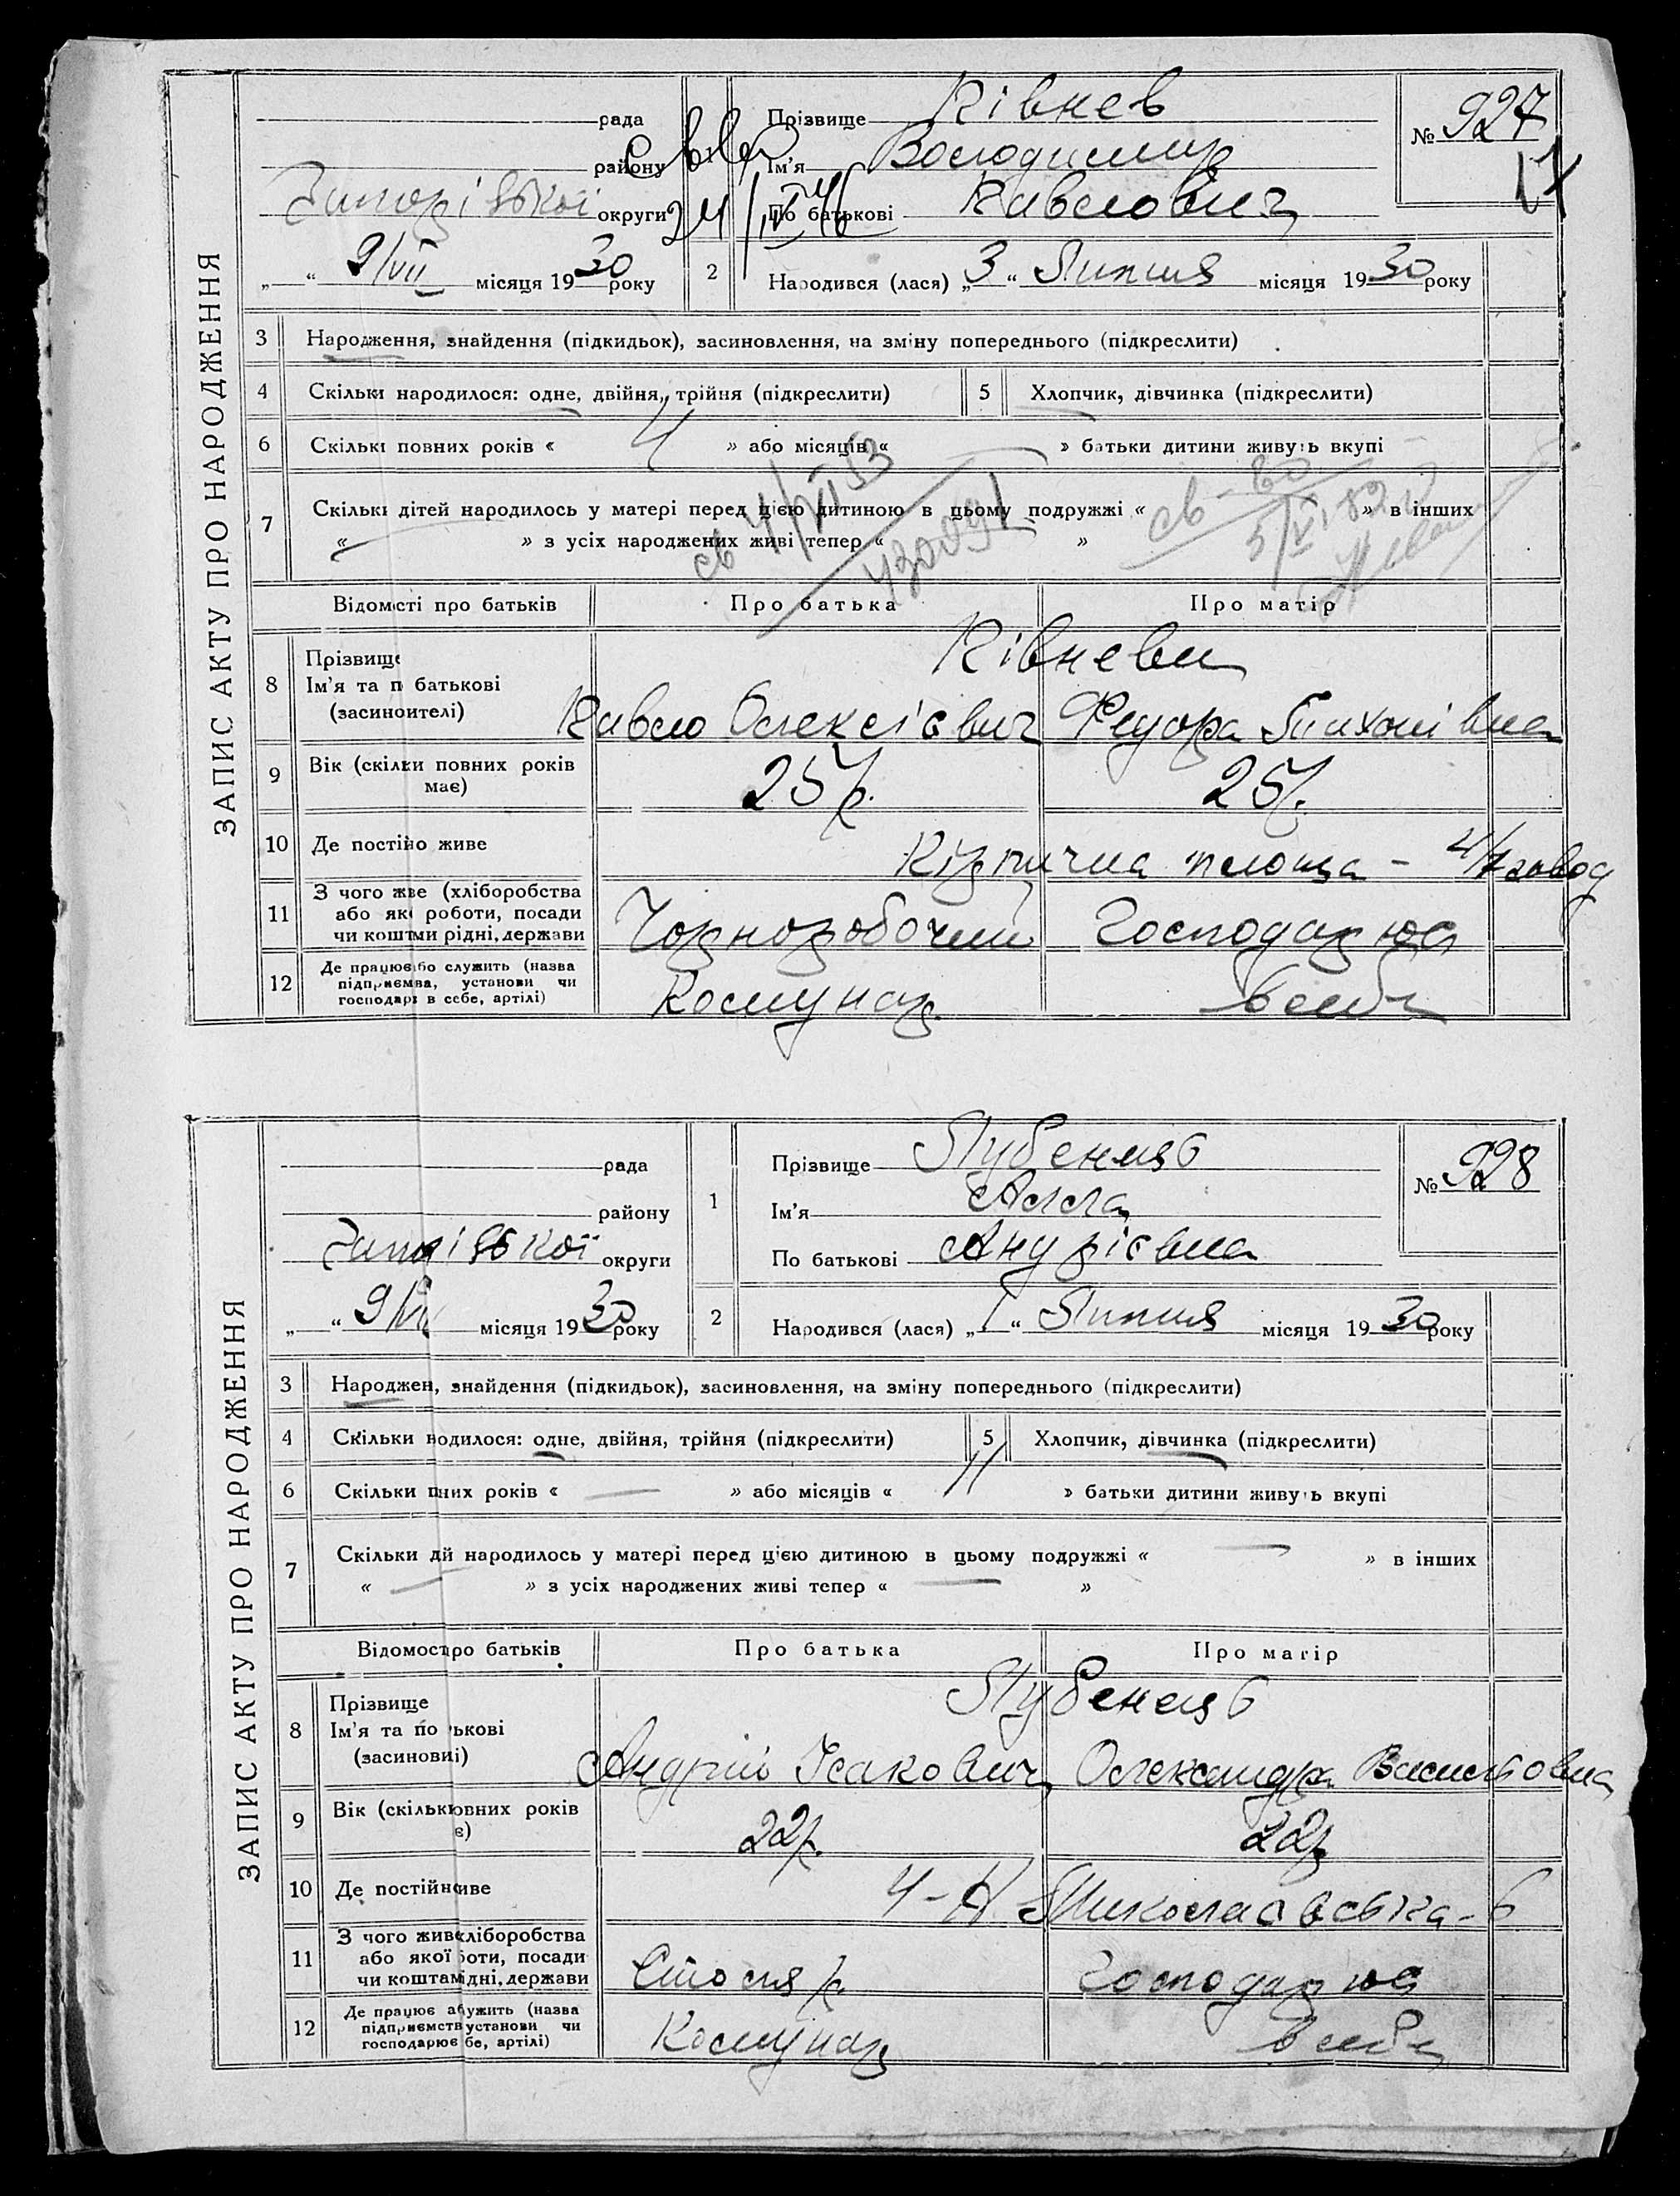 ЗАПИС АКТУ ПРО НАРОДЖЕННЯ
рада
району
Запорізької округи
„ “ 9/VII місяця 1930 року
Прізвище Півнев
Ім’я Володимир
По батькові Павлович
№ 927
2 Народився (лася) „3“ Липня місяця 1930 року
3 Народження, знайдення (підкидьок), засиновлення, на зміну попереднього (підкреслити)
4 Скільки народилося: одне, двійня, трійня (підкреслити) 5 Хлопчик, дівчинка (підкреслити)
6 Скількі повних років « 4 » або місяців « — » батьки дитини живуть вкупі
7 Скількі дітей народилось у матері перед цією дитиною в цьому подружжі « » в інших
« — » з усіх народжених живі тепер « »
св 4/VII 53
св-во
Відомсті про батьків Про батька Про матір
8 Прізвище
Ім’я та п батькові
(засиноителі)
Півневи
Павло Олексієвич Федора Тихонівна
9 Вік (скільки повних років має)
25 р. 25 р.
10 Де постіно живе
Кірпична площа - 4/7 завод
11 З чого жве (хліборобства
або які роботи, посади
чи коштми рідні, держави
Чорноробочий Господарює
12 Де працюєбо служить (назва
підприємва, установи чи
господарі в себе, артілі)
Комунар. вдома
ЗАПИС АКТУ ПРО НАРОДЖЕННЯ
рада
району
Запорізької округи
„ “ 9/VII місяця 1930 року
1 Прізвище Лубенець
Ім’я Алла
По батькові Андрієвна
№ 928
2 Народився (лася) „1“ Липня місяця 1930 року
3 Народжен, знайдення (підкидьок), засиновлення, на зміну попереднього (підкреслити)
4 Скільки водилося: одне, двійня, трійня (підкреслити) 5 Хлопчик, дівчинка (підкреслити)
6 Скільки пних років « — » або місяців « 11 » батьки дитини живуть вкупі
7 Скільки дй народилось у матері перед цією дитиною в цьому подружжі « — » в інших
« — » з усіх народжених живі тепер « — »
Відомостро батьків Про батька Про матір
8 Прізвище
Ім’я та по ькові
(засиновиі)
Лубенець
Андрій Ісакович Олександра Василівна
9 Вік (скількювних років
є)
22 р. 22 р.
10 Де постійниве
4-А Миколаєвська - 6
11 З чого живкліборобства
або якої оти, посади
чи коштамідні, держави
Столяр. Господарює
12 Де працює аужить (назва
підприємствустанови чи
господарює бе, артілі)
Комунар